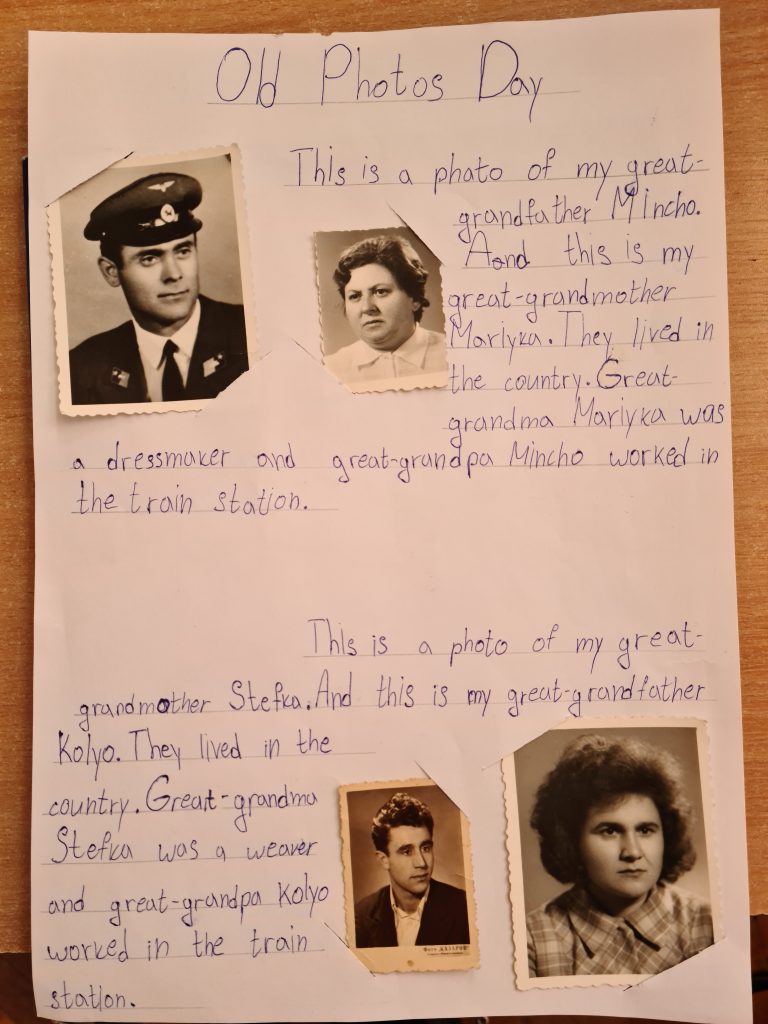 Old Photos Day
This is a photo of my great-
grandfather Mincho.
And this is my
great-grandmother
Mariyka. They lived in
the country. Great-
grandma Mariyka was
a dressmaker and great-grandpa Mincho worked in
the train station.
This is a photo of my great-
grandmother Stefka. And this is my great-grandfather
Kolyo. They lived in the
country. Great-grandma
Stefka was a weaver
and great-grandpa Kolyo
worked in the train
station.